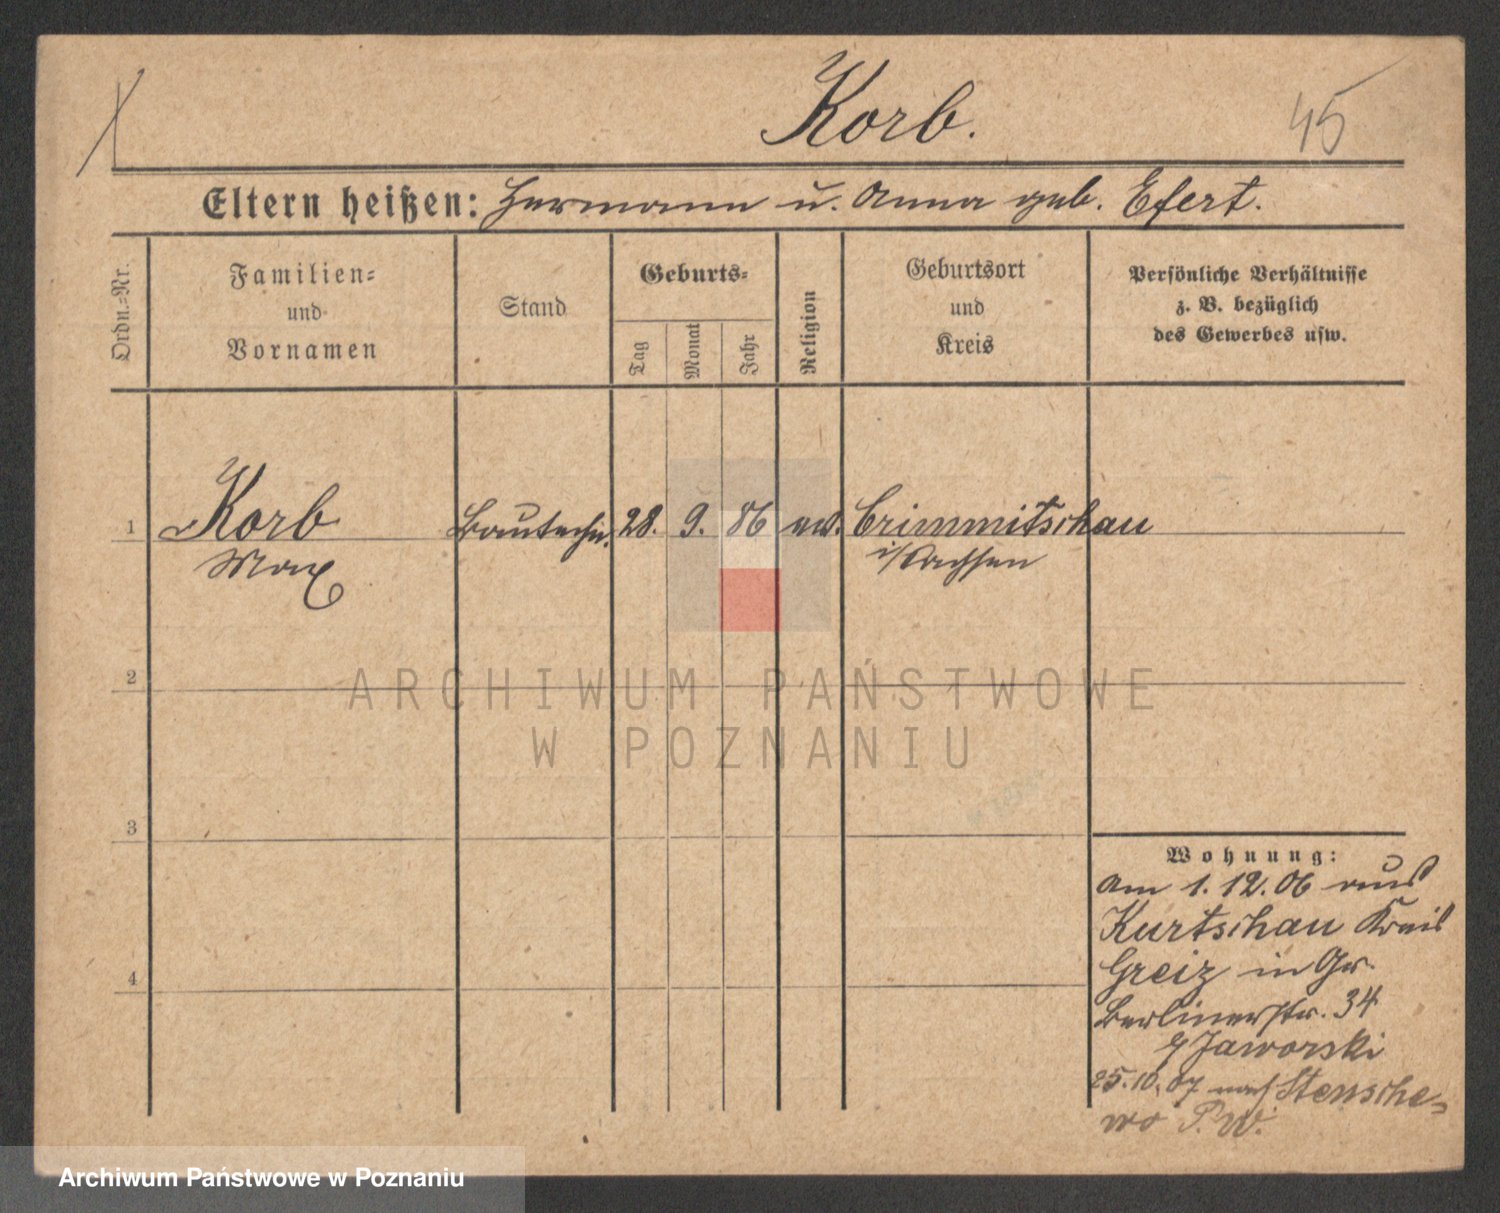 Korb.
45
Eltern heißen: Hermann u. Anna geb. Efert.
Ordn.-Nr.
Familien-
und
Vornamen
Stand
Geburts-
Tag
Monat
Jahr
Religion
Geburtsort
und
Kreis
Persönliche Verhältnisse
z. B. bezüglich
des Gewerbes usw.
1 Korb Bautechn. 28. 9. 86 ev. Crimmitschau
Max i/Sachsen
2
ARCHIWUM PAŃSTWOWE
W POZNANIU
3
Wohnung:
am 1.12.06 aus
Kurtschau Kreis
Greiz in Gr.
Berlinerstr. 34
b/ Jaworski
4
25.10.07 nach Stensche-
wo P.W.
Archiwum Państwowe w Poznaniu